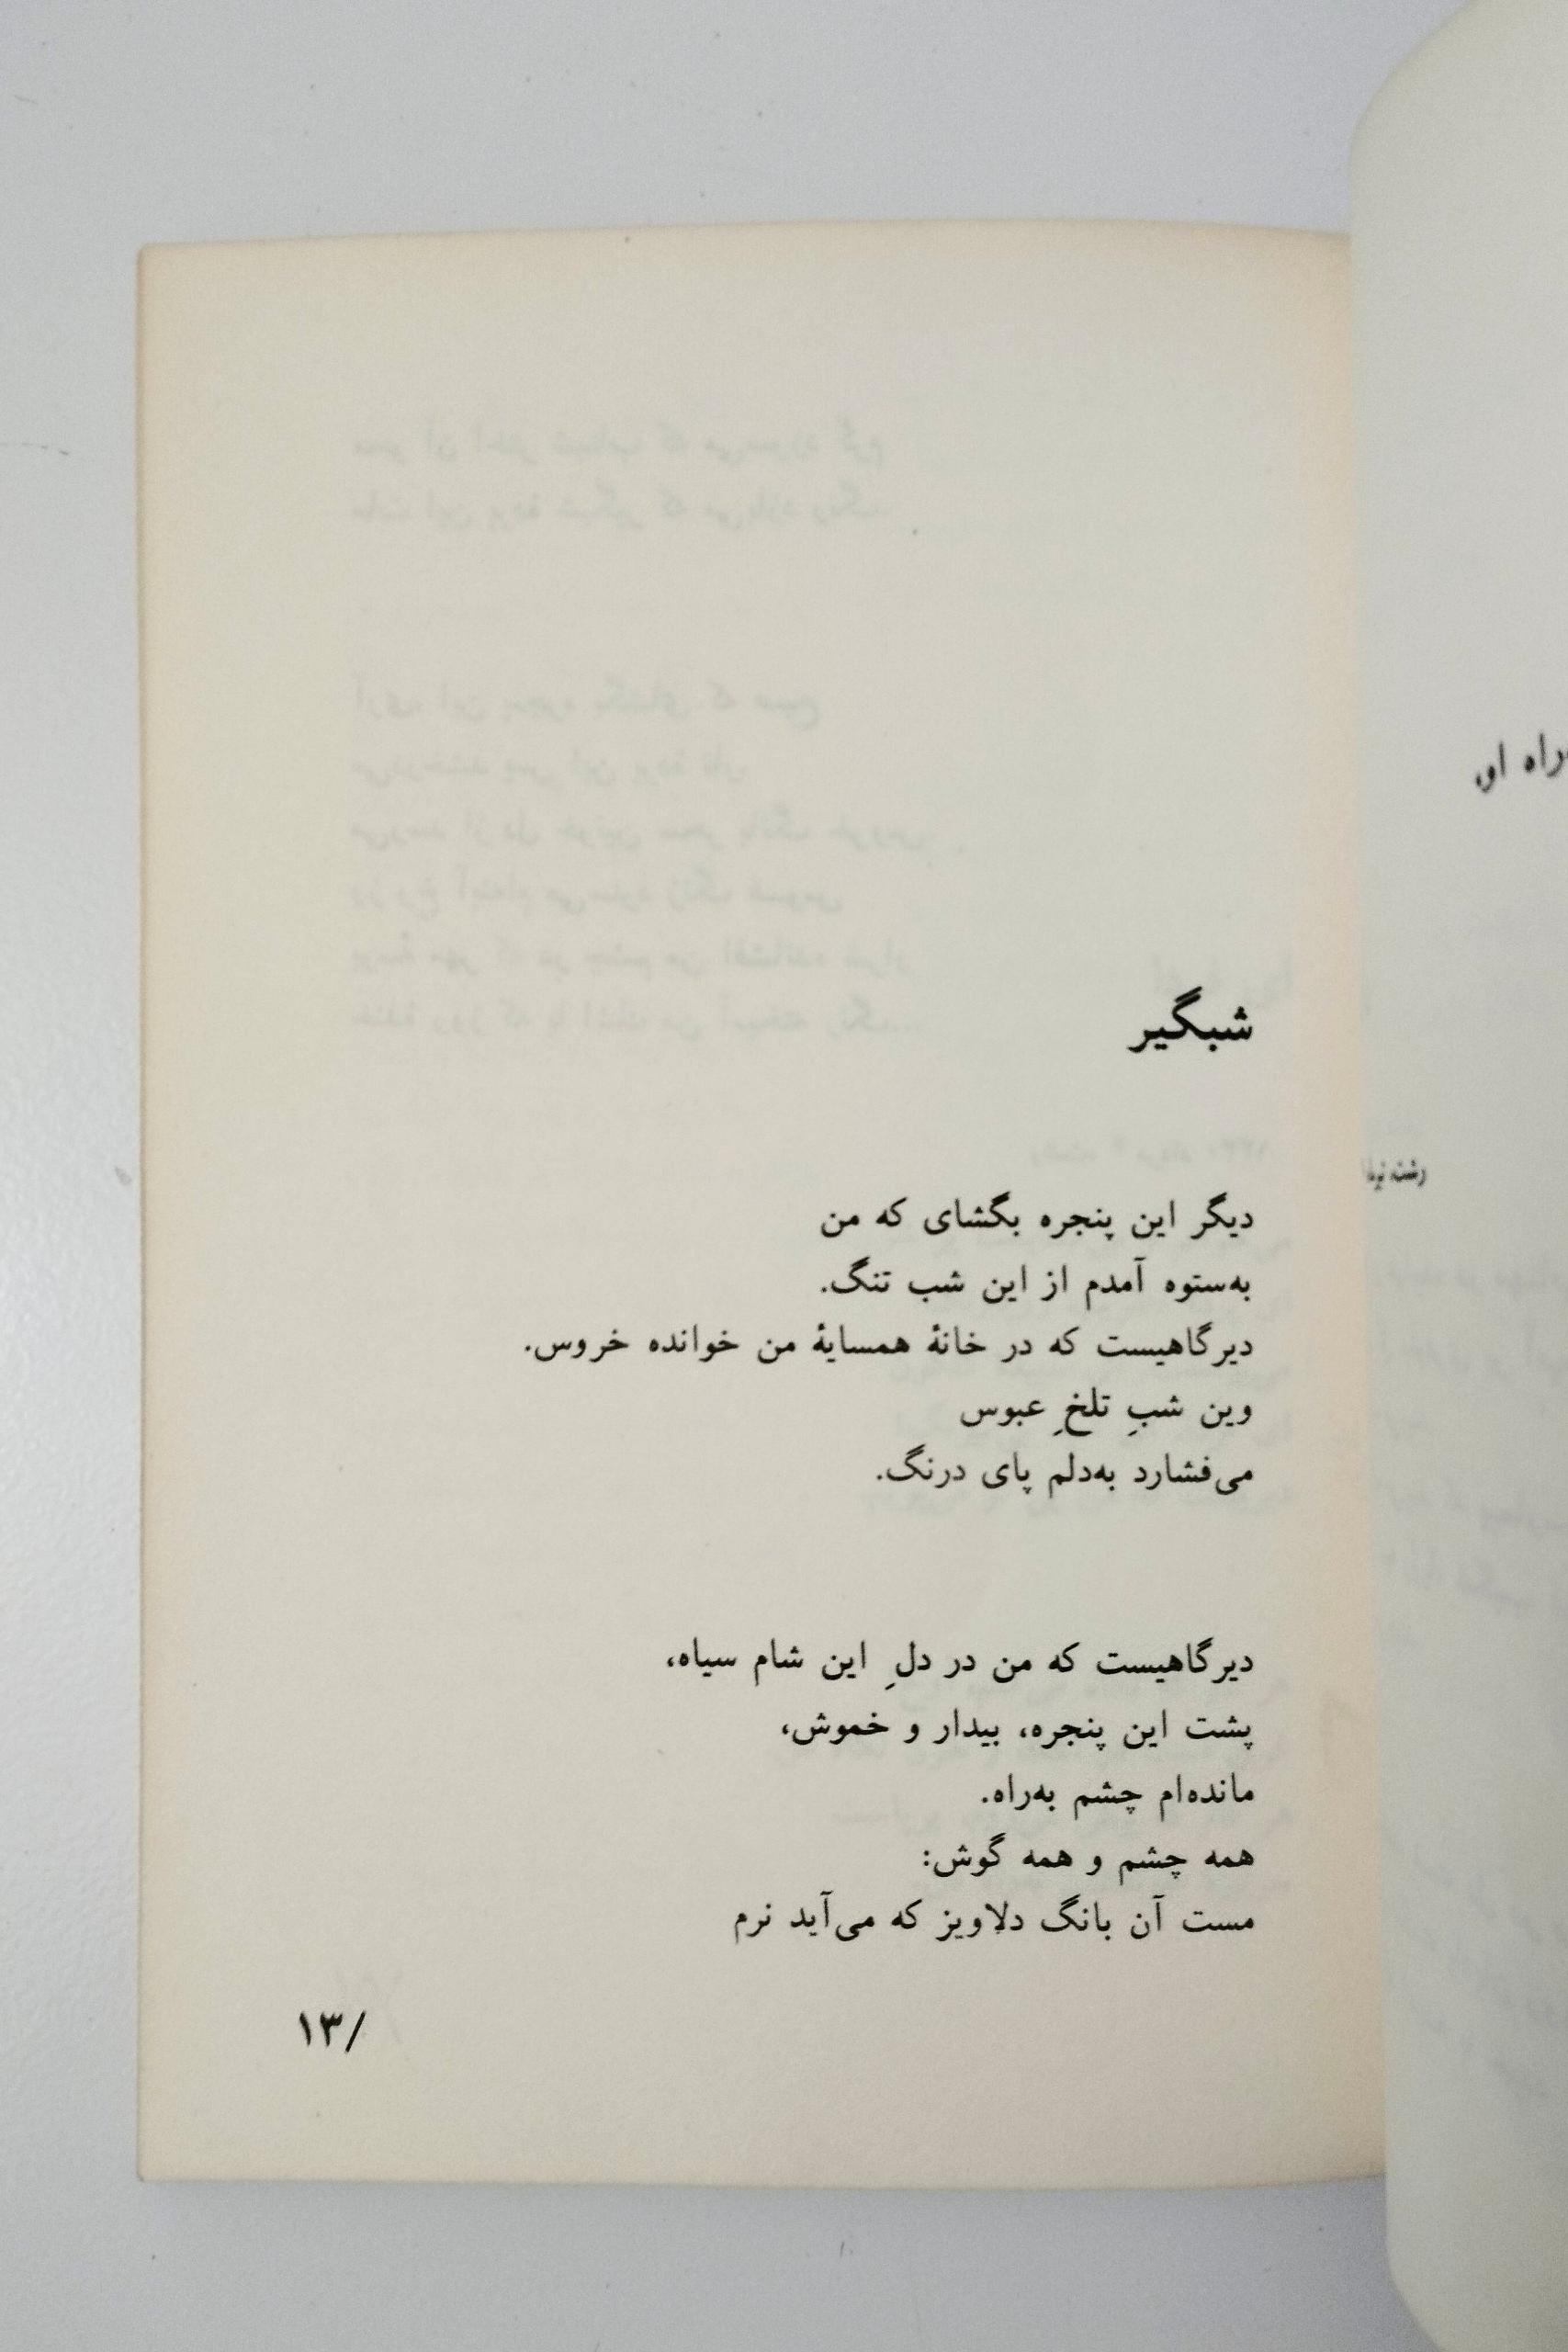 شبگیر
دیگر این پنجره بگشای که من
به‌ستوه آمدم از این شب تنگ.
دیرگاهیست که در خانهٔ همسایهٔ من خوانده خروس.
وین شبِ تلخِ عبوس
می‌فشارد به‌دلم پای درنگ.
دیرگاهیست که من در دلِ این شام سیاه،
پشت این پنجره، بیدار و خموش،
مانده‌ام چشم به‌راه.
همه چشم و همه گوش:
مست آن بانگ دلاویز که می‌آید نرم
/۱۳
راه او،